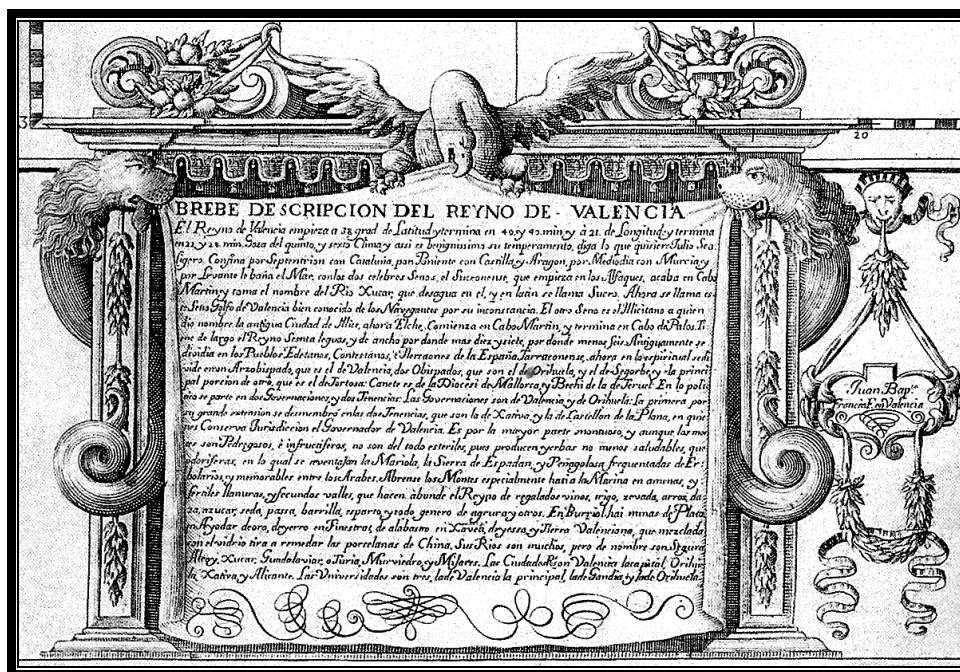 BREBE DESCRIPCION DEL REYNO DE · VALENCIA
El Reyno de Valencia empieza a 38 grad de Latitud y termina en 40, y 43. min. y à 21. de Longitud; y termina
en 21 y 28. min. Goza del quinto, y sexto Clima y asi es benignisimo su temperamento, diga lo que quisier Julio Sca
ligero. Confina por Septentrion con Cataluña, por Poniente con Castilla, y Aragon, por Mediodia con Murcia, y
por Levante le baña el Mar, con los dos celebres Senos, el Sucronense, que empieza en los Alfaques, acaba en Cabo
Martin, y toma el nombre del Rio Xucar, que desagua en el, y en latin se llama Sucro. Ahora se llama es
te Seno Golfo de Valencia bien conocido de los Navegantes por su inconstancia. El otro Seno es el Illicitano a quien
dio nombre la antigua Ciudad de Illice, ahora Elche, Comienza en Cabo Martin, y termina en Cabo de Palos. Ti
ene de largo el Reyno Sesenta leguas, y de ancho por donde mas diez y siete, por donde menos seis. Antiguamente se
dividia en los Pueblos Edetanos, Contestanos, è Ilercaones de la España Tarraconense, ahora en lo espiritual se di
vide en un Arzobispado, que es el de Valencia, dos Obispados, que son el de Orihuela, y el de Segorbe, y la princi
pal porcion de otro, que es el de Tortosa: Canete es de la Diocesi de Mallorca, y Bechi de la de Teruel. En lo poli
tico se parte en dos Governaciones, y dos Tenencias. Las Governaciones son de Valencia y de Orihuela: La primera por
su grande extension se desmembró en las dos Tenencias, que son la de Xativa, y la de Castellon de la Plana, en quie
nes Conserva Jurisdiccion el Governador de Valencia. Es por la mayor parte montuoso, y aunque los mo
tes son Pedregosos, è infructiferos, no son del todo esteriles, pues producen yerbas no menos saludables, que
odoriferas, en lo qual se aventajan la Mariola, la Sierra de Espadan, y Peñagolosa frequentadas de Er:
bolarios, y memorables entre los Arabes. Abrense los Montes especialmente hazia la Marina en amenas, y
fertiles llanuras, y fecundos valles, que hacen, abunde el Reyno de regalados vinos, trigo, zevada, arroz, da
za, azucar, seda, passa, barrilla, esparto, y todo genero de agrura, y otros. En Buriol hai minas de Plata
en Ayodar de oro, de yerro en Finestrat, de alabastro en Xavea, de yesso, y Tierra Valenciana, que mezclada
con el vidrio tira a remedar las porcelanas de China. Sus Rios son muchos, pero de nombre son Segura
Alcoy, Xucar, Guadalaviar, o Turia, Murviedro, y Mijares. Las Ciudades son Valencia la capital, Orihue
la, Xativa, y Alicante. Las Universidades son tres, la de Valencia la principal, la de Gandia, y la de Orihuela.
20
Juan Bap.ta
Francia F. en Valencia